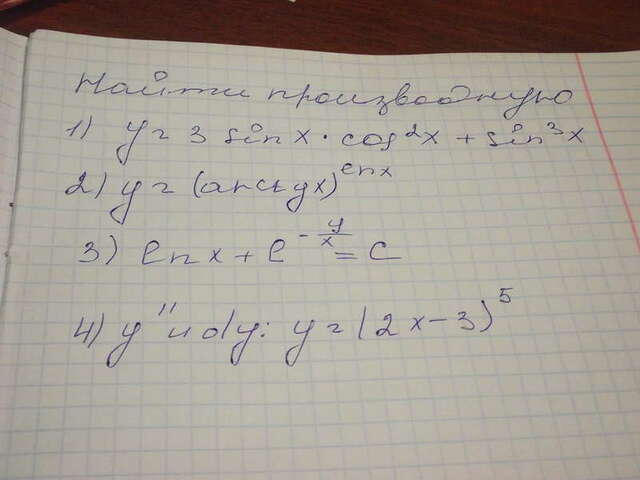 Найти производную
1) y = 3 sin x · cos²x + sin³x
2) y = (arctg x)^ln x
3) ln x + e^(-y/x) = C
4) y'' и dy: y = (2x-3)⁵